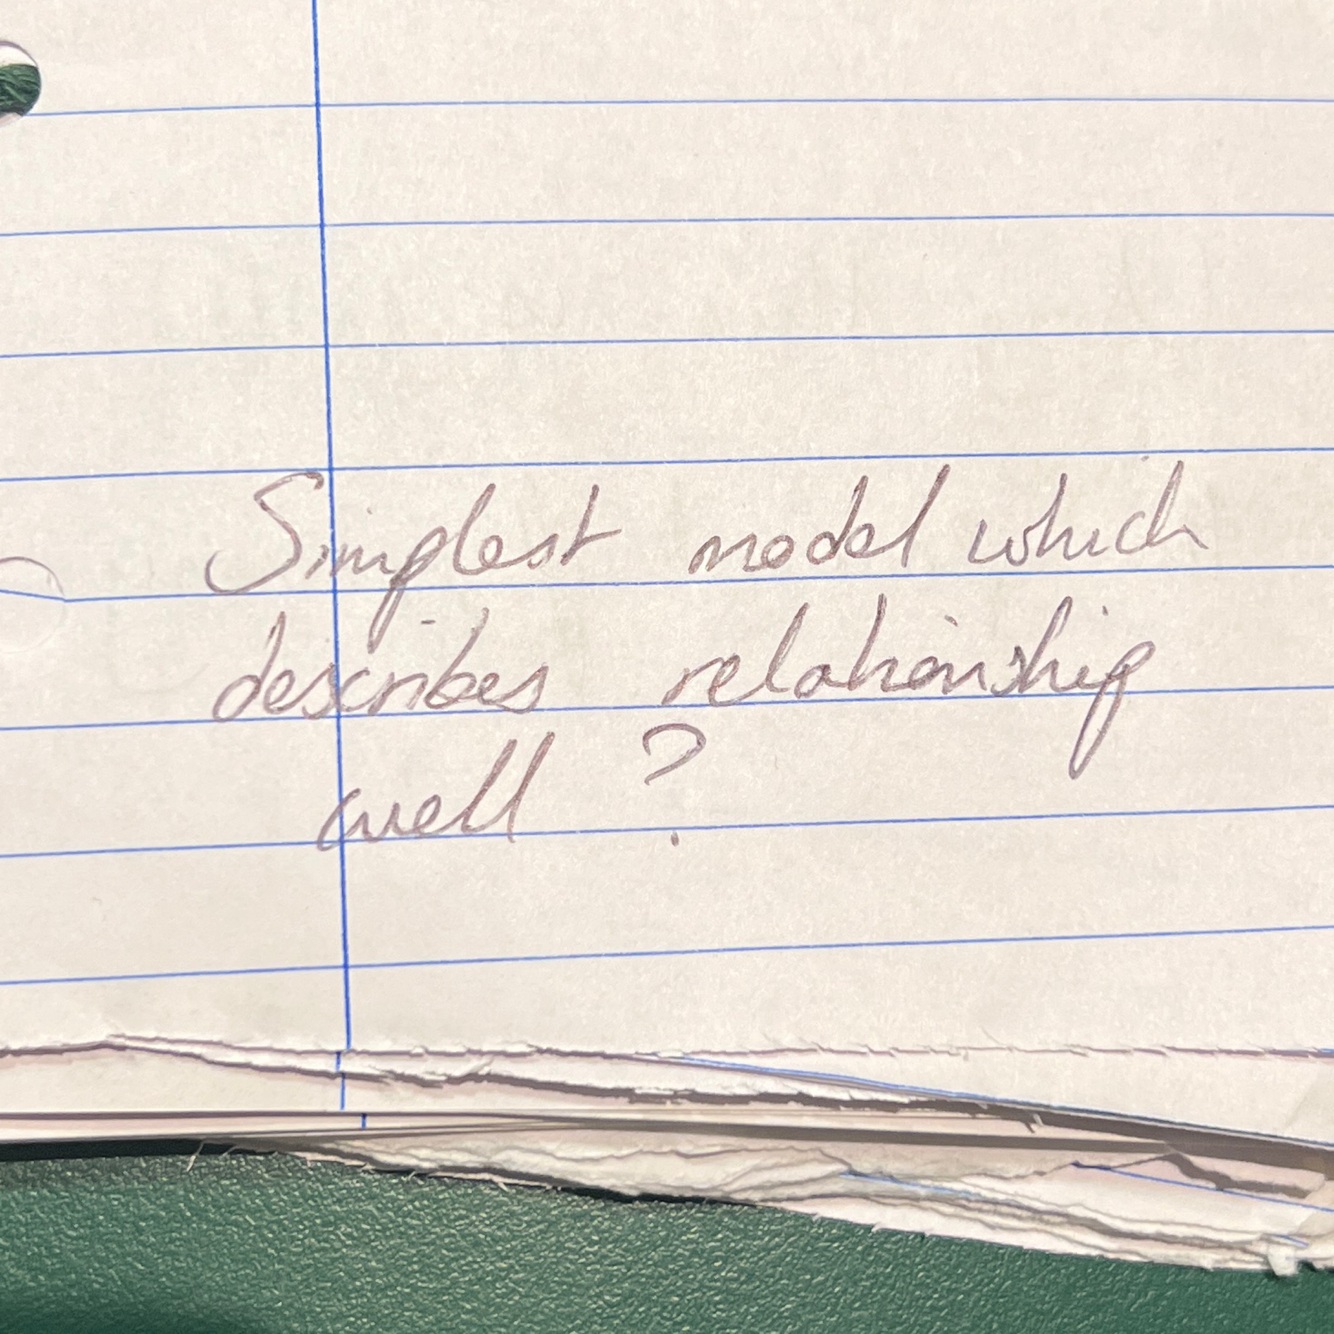 Simplest model which
describes relationship
well ?